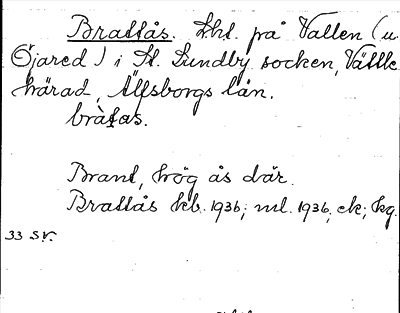 Brattås. Lht. på Vallen (u
Öjared) i St. Lundby socken, Vättle
härad, Älfsborgs län.
bràtas.
Brant, hög ås där.
Brattås hb. 1936; ml. 1936, ek; hg.
33 sv.